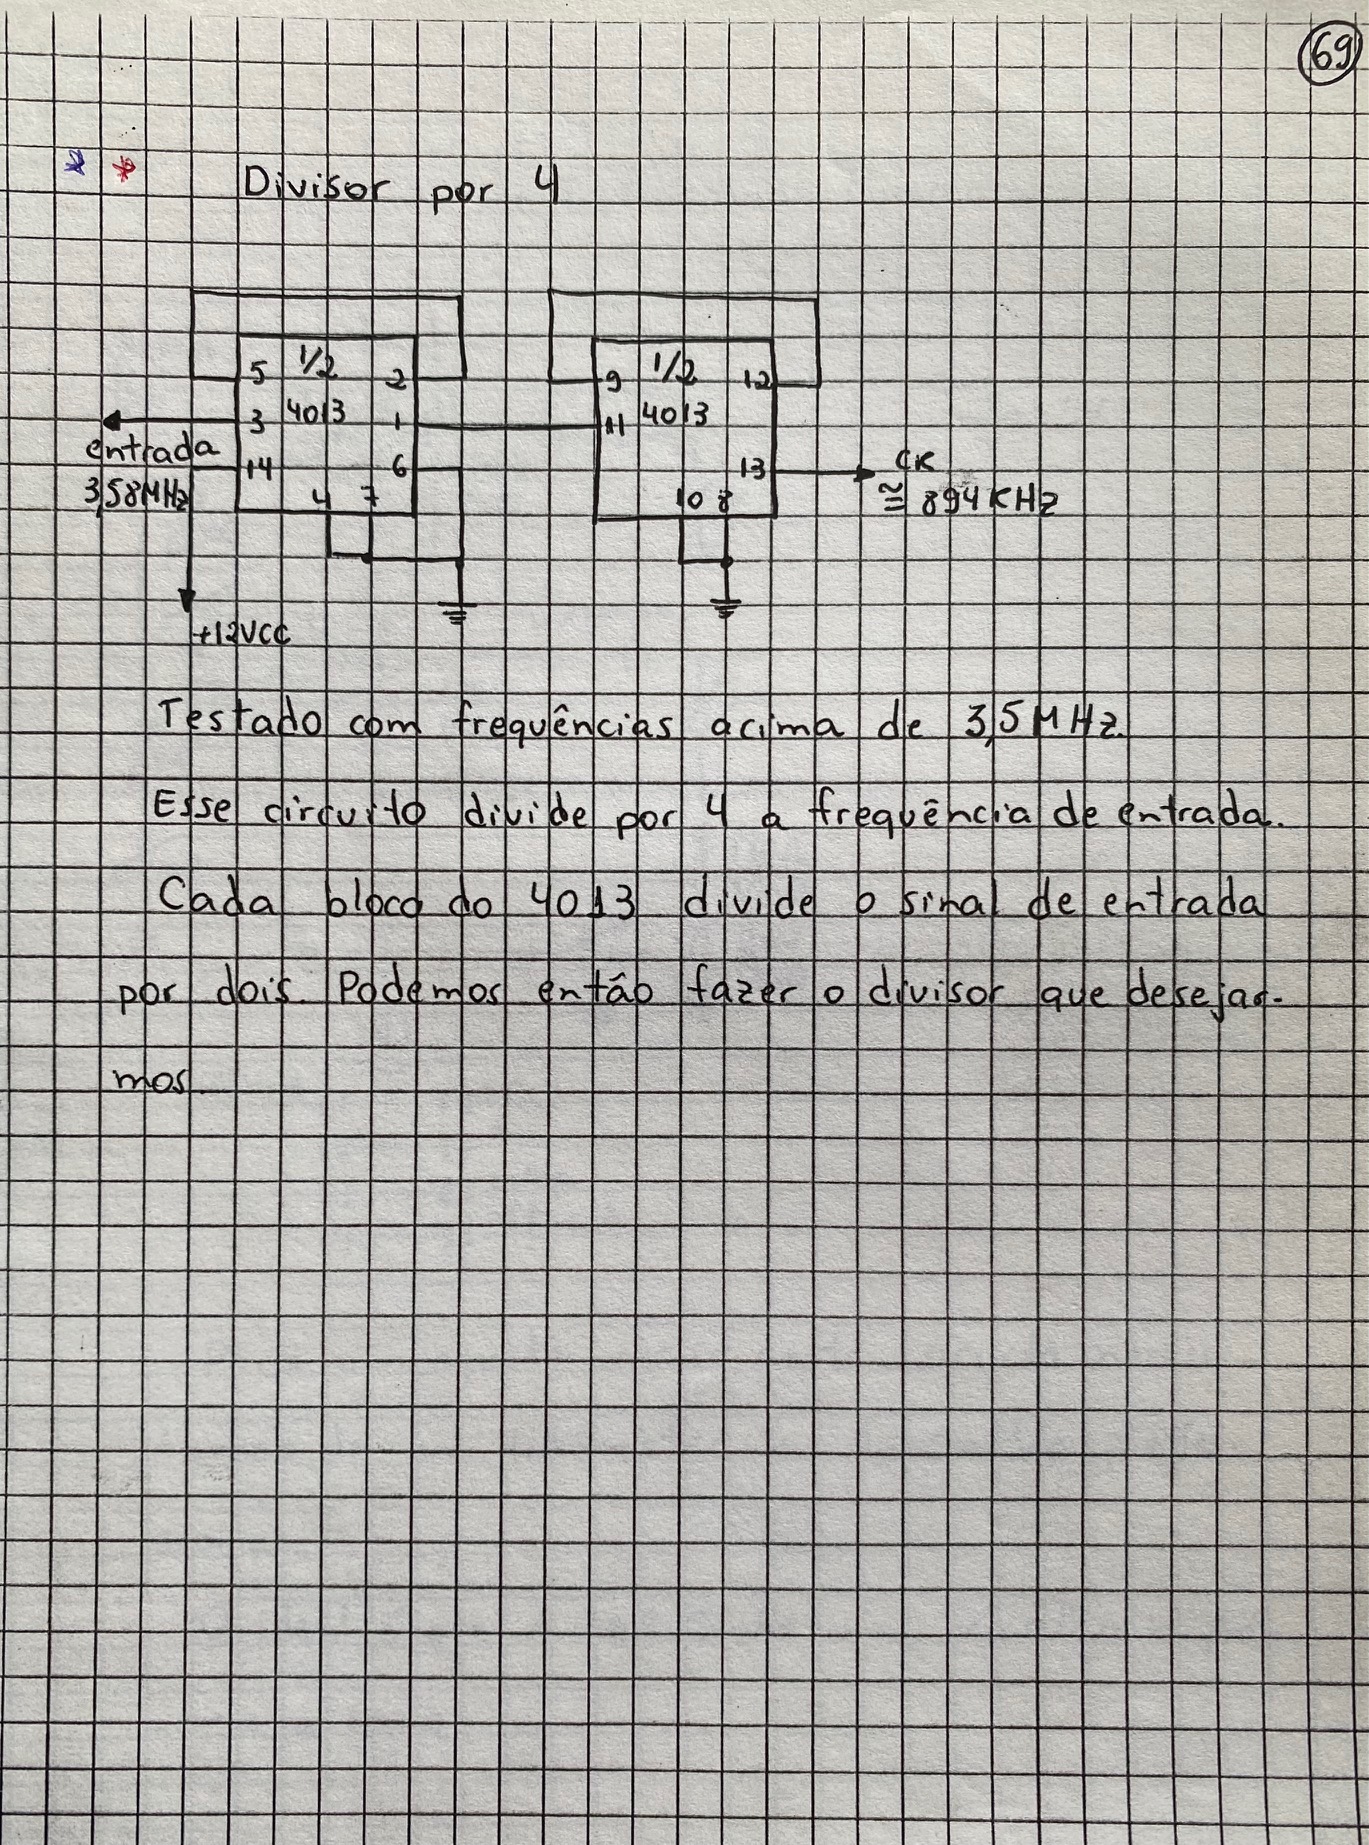 69
* * Divisor por 4
5 1/2 2
4013
3 1
14 6
4 7
entrada
3,58MHz
+12VCC
9 1/2 12
11 4013
13
10 8
CK
≅ 894KHz
Testado com frequências acima de 3,5MHz.
Esse circuito divide por 4 a frequência de entrada.
Cada bloco do 4013 divide o sinal de entrada
por dois. Podemos então fazer o divisor que desejar-
mos.